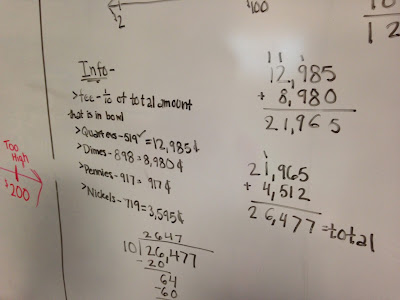 $100
10
12
Info-
>fee-1/10 of total amount
that is in bowl
>Quarters-519✓=12,985¢
>Dimes-898=8,980¢
>Pennies-917=917¢
>Nickels-719=3,595¢
2647
10)26,477
-20
64
-60
1 1 1
12,985
+ 8,980
21,965
1
21,965
+ 4,512
26,477=total
Too
High
$200